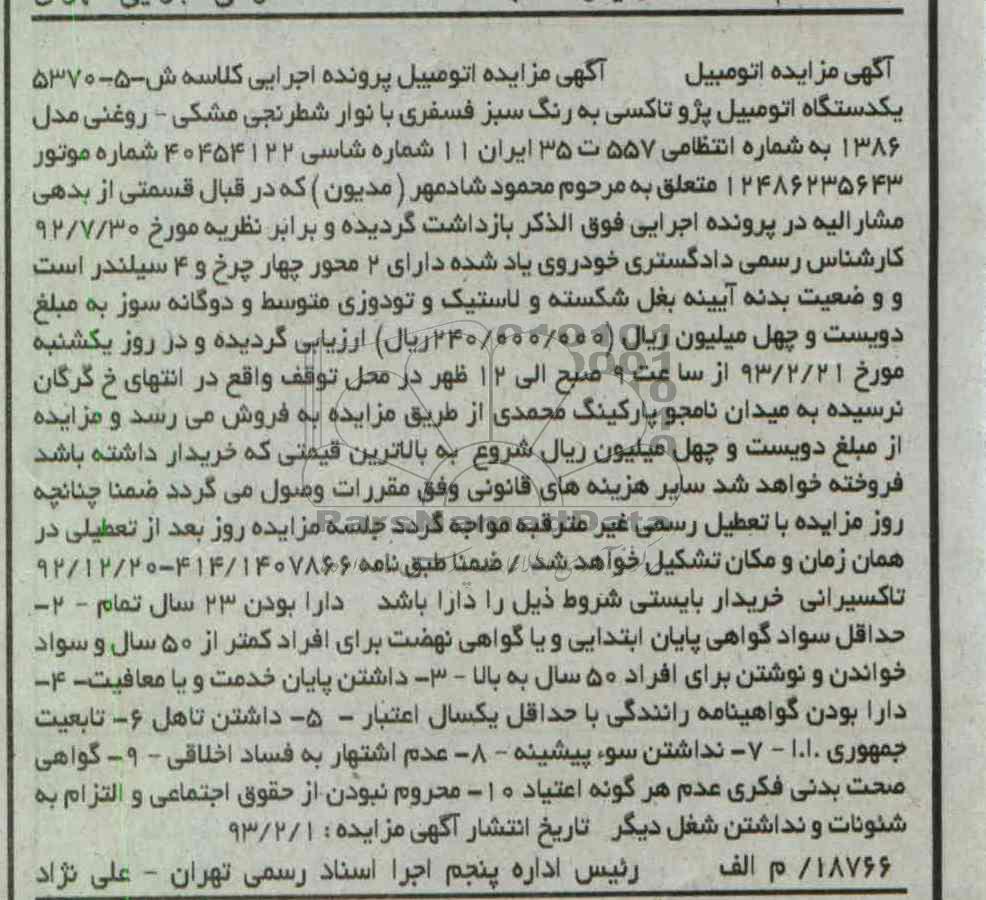 آگهی مزایده اتومبیل آگهی مزایده اتومبیل پرونده اجرایی کلاسه ش-۵-۵۳۷۰
یکدستگاه اتومبیل پژو تاکسی به رنگ سبز فسفری با نوار شطرنجی مشکی - روغنی مدل
۱۳۸۶ به شماره انتظامی ۵۵۷ ت ۳۵ ایران ۱۱ شماره شاسی ۴۰۴۵۴۱۲۲ شماره موتور
۱۲۴۸۶۲۳۵۶۴۳ متعلق به مرحوم محمود شادمهر (مدیون) که در قبال قسمتی از بدهی
مشارالیه در پرونده اجرایی فوق الذکر بازداشت گردیده و برابر نظریه مورخ ۹۲/۷/۳۰
کارشناس رسمی دادگستری خودروی یاد شده دارای ۲ محور چهار چرخ و ۴ سیلندر است
و و ضعیت بدنه آیینه بغل شکسته و لاستیک و تودوزی متوسط و دوگانه سوز به مبلغ
دویست و چهل میلیون ریال (۲۴۰/۰۰۰/۰۰۰ریال) ارزیابی گردیده و در روز یکشنبه
مورخ ۹۳/۲/۲۱ از سا عت ۹ صبح الی ۱۲ ظهر در محل توقف واقع در انتهای خ گرگان
نرسیده به میدان نامجو پارکینگ محمدی از طریق مزایده به فروش می رسد و مزایده
از مبلغ دویست و چهل میلیون ریال شروع به بالاترین قیمتی که خریدار داشته باشد
فروخته خواهد شد سایر هزینه های قانونی وفق مقررات وصول می گردد ضمنا چنانچه
روز مزایده با تعطیل رسمی غیر مترقبه مواجه گردد جلسه مزایده روز بعد از تعطیلی در
همان زمان و مکان تشکیل خواهد شد / ضمنا طبق نامه ۴۱۴/۱۴۰۷۸۶۶-۹۲/۱۲/۲۰
تاکسیرانی خریدار بایستی شروط ذیل را دارا باشد دارا بودن ۲۳ سال تمام - ۲-
حداقل سواد گواهی پایان ابتدایی و یا گواهی نهضت برای افراد کمتر از ۵۰ سال و سواد
خواندن و نوشتن برای افراد ۵۰ سال به بالا - ۳- داشتن پایان خدمت و یا معافیت- ۴-
دارا بودن گواهینامه رانندگی با حداقل یکسال اعتبار - ۵- داشتن تاهل ۶- تابعیت
جمهوری .ا.ا - ۷- نداشتن سوء پیشینه - ۸- عدم اشتهار به فساد اخلاقی - ۹- گواهی
صحت بدنی فکری عدم هر گونه اعتیاد ۱۰- محروم نبودن از حقوق اجتماعی و التزام به
شئونات و نداشتن شغل دیگر تاریخ انتشار آگهی مزایده : ۹۳/۲/۱
۱۸۷۶۶/ م الف رئیس اداره پنجم اجرا اسناد رسمی تهران - علی نژاد
ParsNamadData